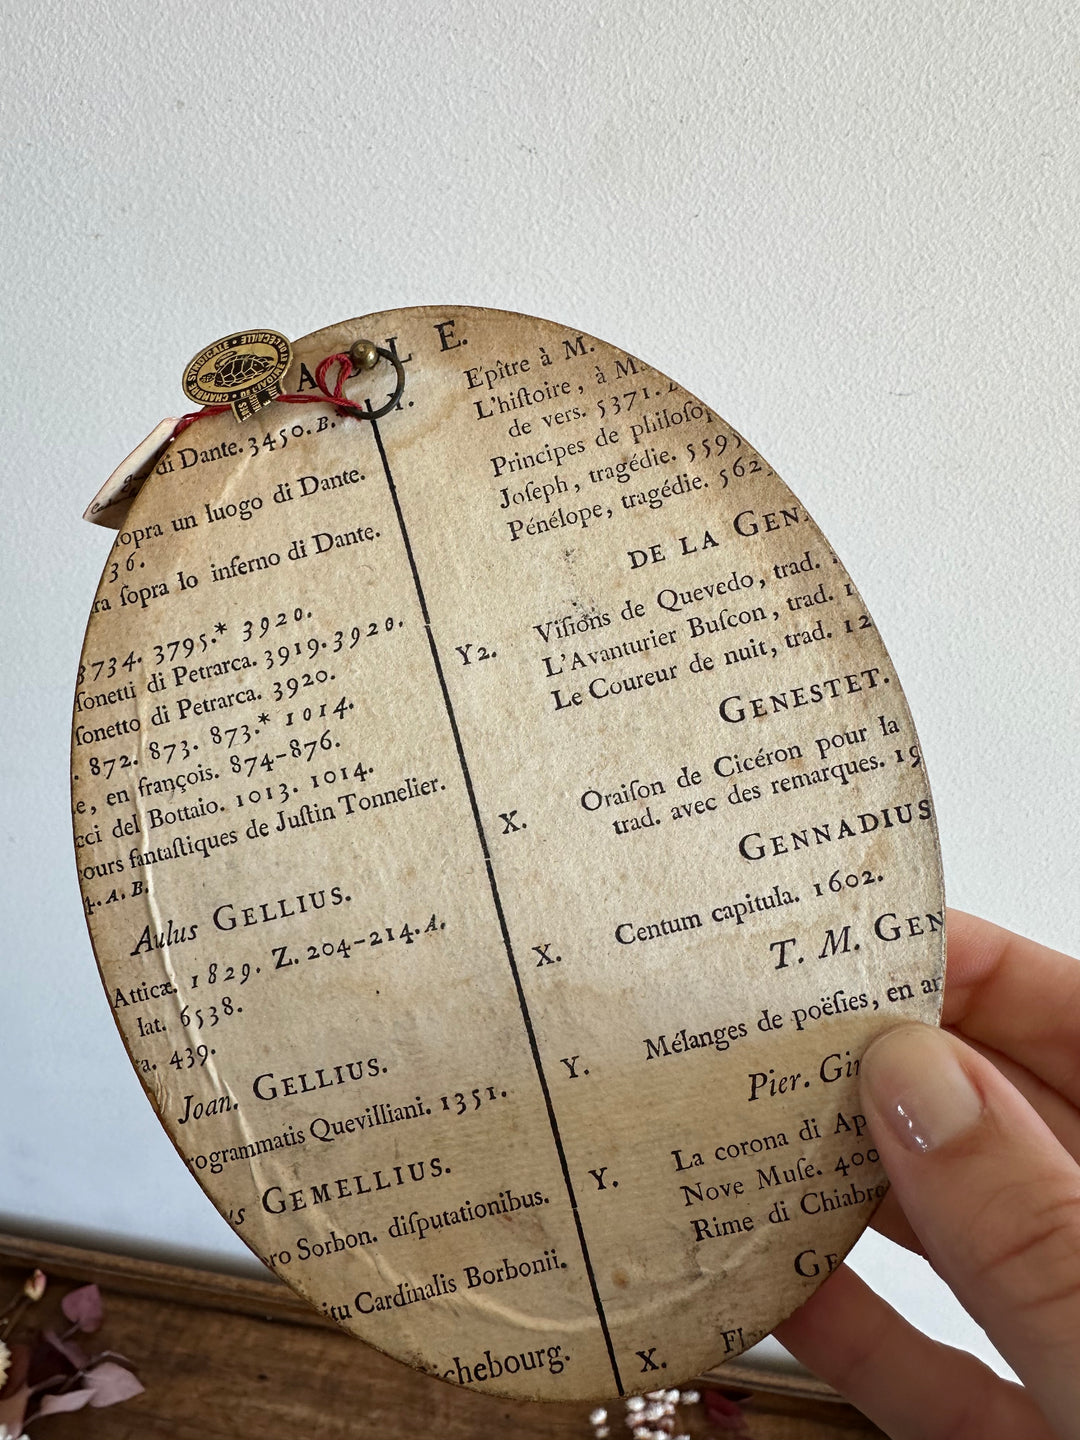 CHAMBRE SYNDICALE
L E.
di Dante. 3450. B.
ſopra un luogo di Dante.
36.
ra ſopra lo inferno di Dante.
3734. 3795.* 3920.
ſonetti di Petrarca. 3919. 3920.
ſonetto di Petrarca. 3920.
. 872. 873. 873.* 1014.
e, en françois. 874-876.
cci del Bottaio. 1013. 1014.
cours fantaſtiques de Juſtin Tonnelier.
4. A. B.
Aulus GELLIUS.
Atticæ. 1829. Z. 204-214. A.
lat. 6538.
a. 439.
Joan. GELLIUS.
rogrammatis Quevilliani. 1351.
's GEMELLIUS.
ero Sorbon. diſputationibus.
itu Cardinalis Borbonii.
ichebourg.
Y.
Epître à M.
L'hiſtoire, à M.
de vers. 5371.
Principes de philoſop
Joſeph, tragédie. 5595
Pénélope, tragédie. 562
DE LA GEN
Y2. Viſions de Quevedo, trad.
L'Avanturier Buſcon, trad. 1
Le Coureur de nuit, trad. 12
GENESTET.
X. Oraiſon de Cicéron pour la
trad. avec des remarques. 19
GENNADIUS
X. Centum capitula. 1602.
T. M. GEN
Y. Mélanges de poëſies, en an
Pier. Gir
Y. La corona di Ap
Nove Muſe. 400
Rime di Chiabre
GE
X. Fl